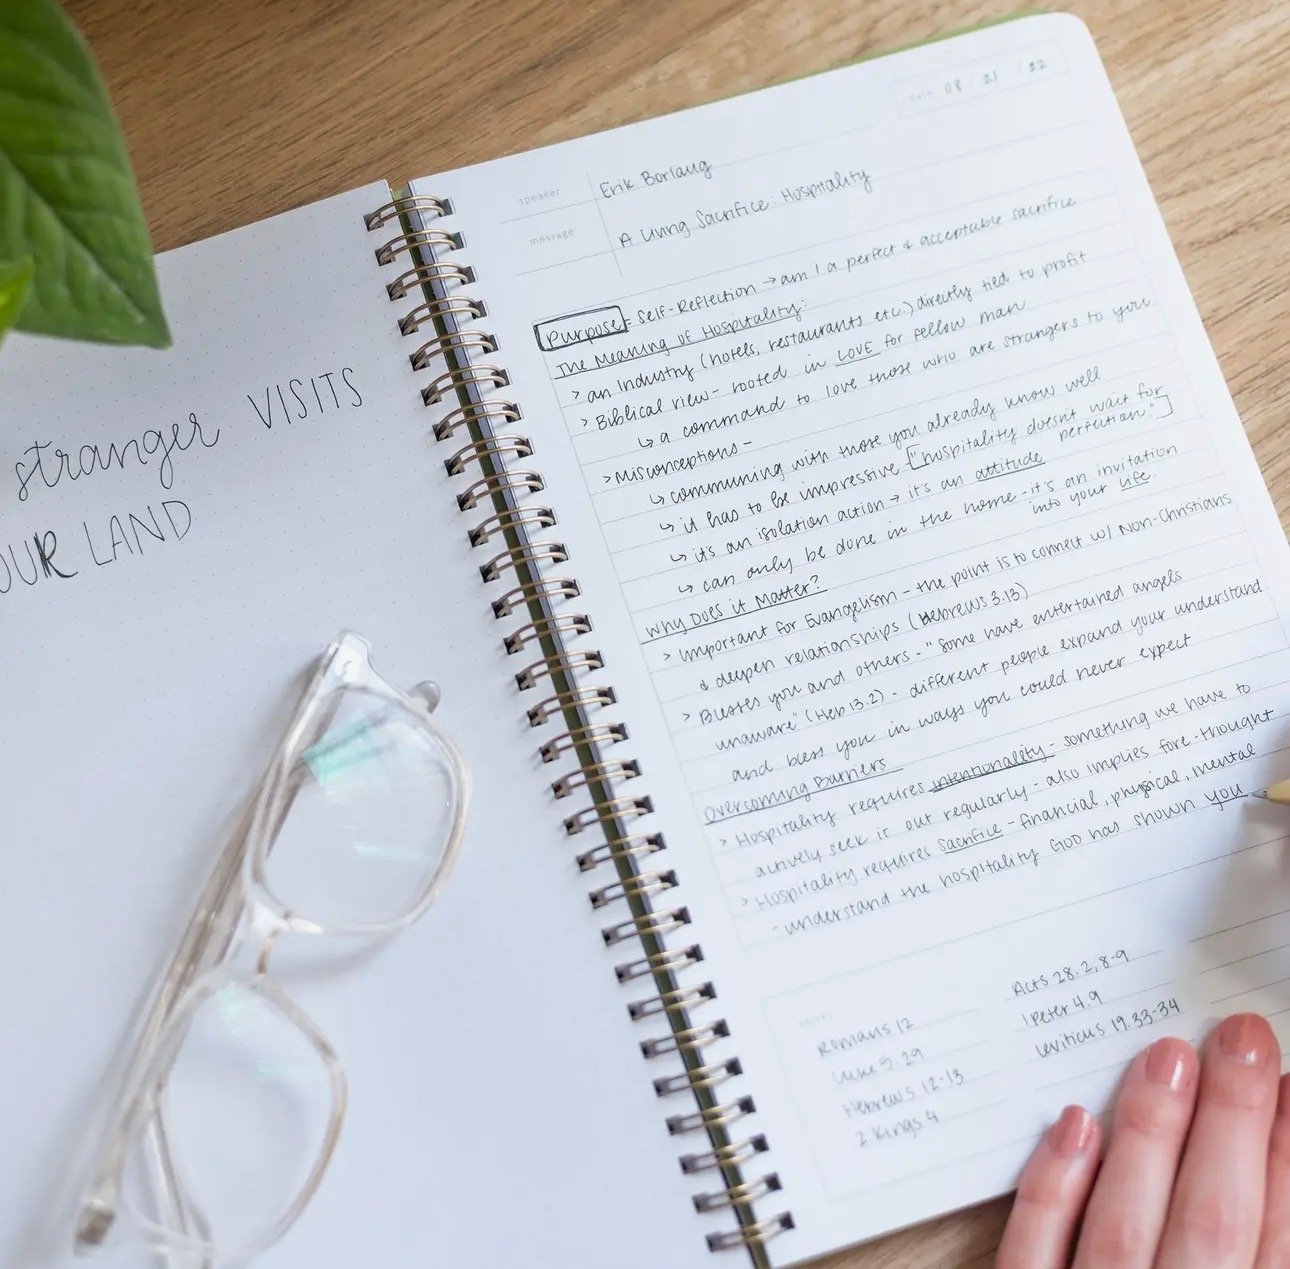 stranger VISITS
OUR LAND
date 08 / 21 / 22
speaker Erik Borlaug
message A Living Sacrifice: Hospitality
Purpose = Self-Reflection → am I a perfect & acceptable sacrifice
The Meaning of Hospitality:
> an Industry (hotels, restaurants etc.) directly tied to profit
> Biblical view - rooted in LOVE for fellow man
↳ a command to love those who are strangers to you
> Misconceptions -
↳ communing with those you already know well
↳ it has to be impressive - ["hospitality doesn't wait for
perfection."]
↳ it's an isolation action → it's an attitude
↳ can only be done in the home - it's an invitation
into your life.
Why Does it Matter?
> Important for Evangelism - the point is to connect w/ Non-Christians
& deepen relationships (Hebrews 3:13)
> Blesses you and others - "some have entertained angels
unaware" (Heb 13:2) - different people expand your understand
and bless you in ways you could never expect
Overcoming Barriers
> Hospitality requires intentionality - something we have to
actively seek it out regularly - also implies fore-thought
> Hospitality requires sacrifice - financial, physical, mental
- understand the hospitality GOD has shown you
notes
Romans 12
Luke 5:29
Hebrews 12-13
2 Kings 4
Acts 28:2, 8-9
1 Peter 4:9
Leviticus 19:33-34